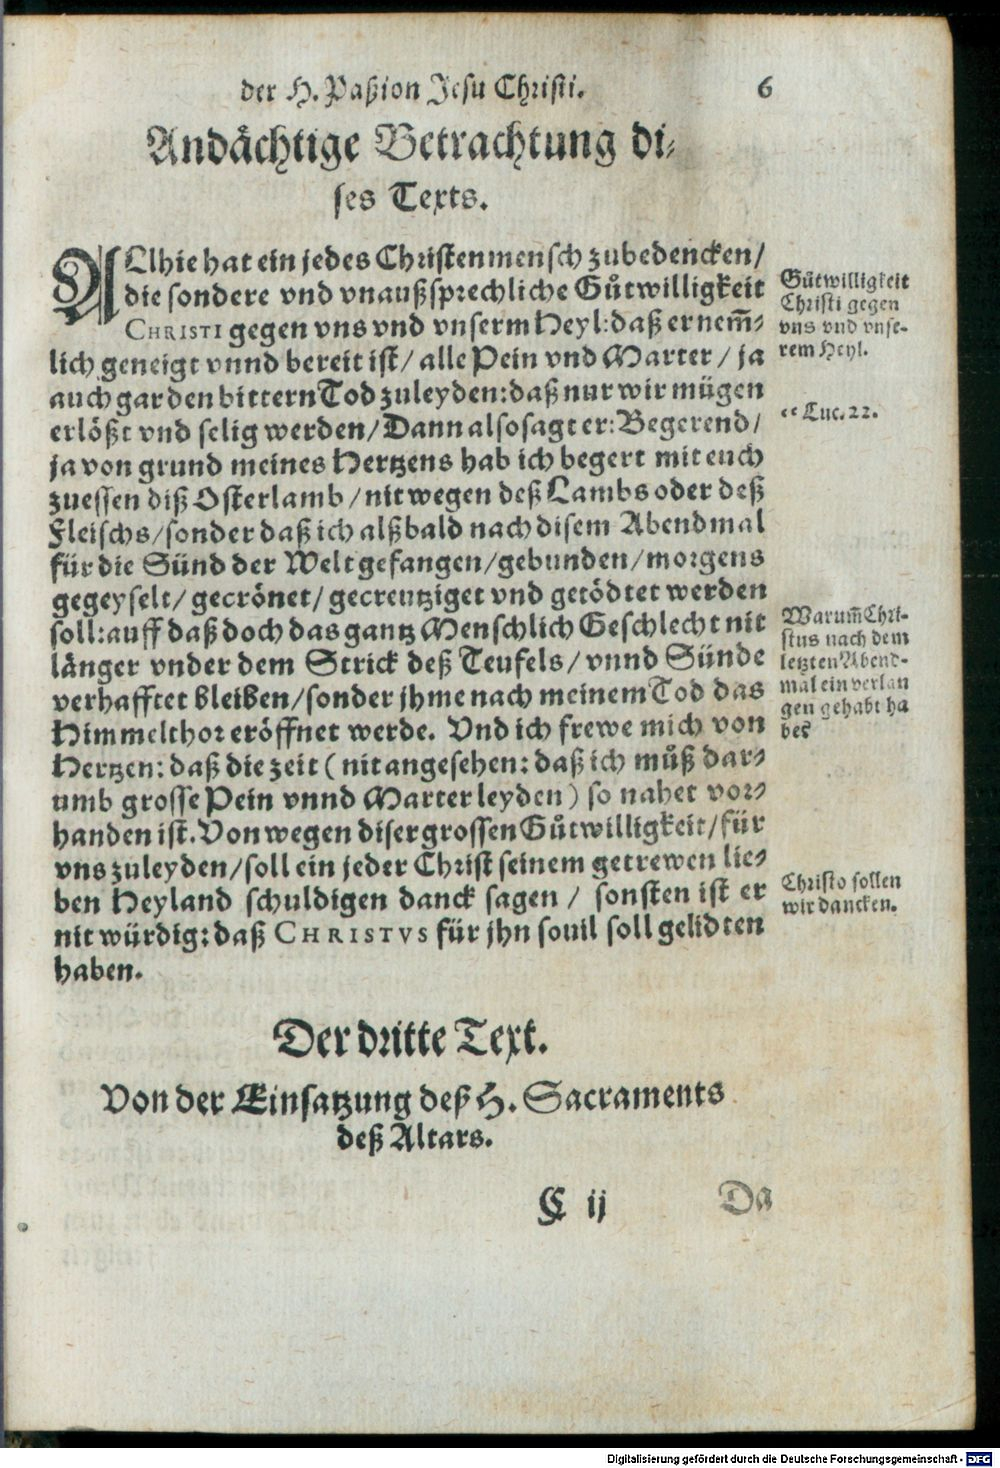 der H. Paßion Jesu Christi. 6
Andächtige Betrachtung di⸗
ses Texts.
ALlhie hat ein jedes Christenmensch zubedencken/
die sondere vnd vnaußsprechliche Gůtwilligkeit
CHRISTI gegen vns vnd vnserm Heyl: daß er nem̃⸗
lich geneigt vnnd bereit ist/ alle Pein vnd Marter/ ja
auch gar den bittern Tod zuleyden: daß nur wir mügen
erlößt vnd selig werden/ Dann also sagt er: Begerend/
ja von grund meines Hertzens hab ich begert mit euch
zuessen diß Osterlamb/ nit wegen deß Lambs oder deß
Fleischs/ sonder daß ich alßbald nach disem Abendmal
für die Sünd der Welt gefangen/ gebunden/ morgens
gegeyselt/ gecrönet/ gecreutziget vnd getödtet werden
soll: auff daß doch das gantz Menschlich Geschlecht nit
länger vnder dem Strick deß Teufels/ vnnd Sünde
verhafftet bleiben/ sonder jhme nach meinem Tod das
Himmelthor eröffnet werde. Vnd ich frewe mich von
Hertzen: daß die zeit (nit angesehen: daß ich můß dar⸗
umb grosse Pein vnnd Marter leyden) so nahet vor⸗
handen ist. Von wegen diser grossen Gůtwilligkeit/ für
vns zuleyden/ soll ein jeder Christ seinem getrewen lie⸗
ben Heyland schuldigen danck sagen/ sonsten ist er
nit würdig: daß CHRISTVS für jhn souil soll gelidten
haben.
Gůtwilligkeit
Christi gegen
vns vnd vnse-
rem Heyl.
“ Luc. 22.
Warum̃ Chri-
stus nach dem
letzten Abend-
mal ein verlan
gen gehabt ha
be?
Christo sollen
wir dancken.
Der dritte Text.
Von der Einsatzung deß H. Sacraments
deß Altars.
C ij Da
Digitalisierung gefördert durch die Deutsche Forschungsgemeinschaft - DFG